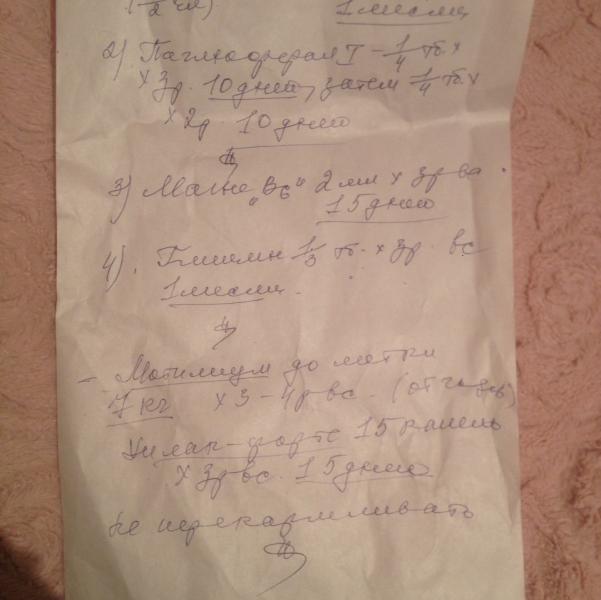 (1/2 ч.л)
1 месяц
2) Паглюферал I - 1/4 т. x
x 3р. 10 дней, затем 1/4 т. x
x 2р. 10 дней
3) Магне „В6" 2 мл x 3р
15 дней
4). Глицин 1/3 т. x 3р. вс
1 месяц.
- Мотилиум до метки
7 кг x 3-4р вс. (от
Хилак-форте 15 капель
x 3р вс. 15 дней
Не перекармливать